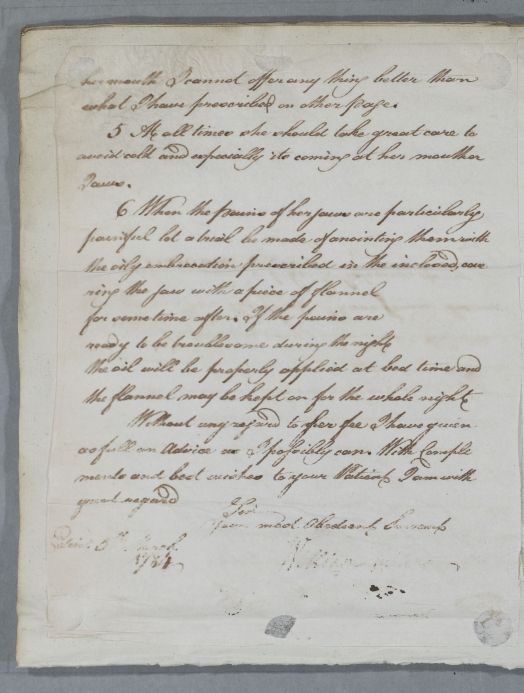 her mouth I cannot offer any thing better than
what I have prescribed on other page.
5 At all times she should take great care to
avoid cold and especially its coming at her mouth or
Jaws.
6 When the pains of her jaws are particularly
painful let a trial be made of anointing them with
the oily embrocation prescribed in the inclosed, cove
ring the jaw with a piece of flannel
for some time after. If the pains are
ready to be troublesome during the night
the oil will be properly applied at bed time and
the flannel may be kept on for the whole night.
Without any regard to her fee I have given
as full an Advice as I possibly can. With Comple
ments and best wishes to your Patient I am with
great regard
Sir
Your most Obedient Servant
5th March
1784